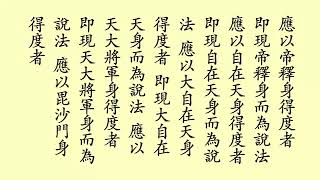 應以帝釋身得度者
即現帝釋身而為說法
應以自在天身得度者
即現自在天身而為說
法 應以大自在天身
得度者 即現大自在
天身而為說法 應以
天大將軍身得度者
即現天大將軍身而為
說法 應以毘沙門身
得度者